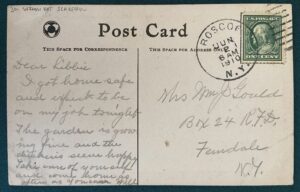 Post Card
THIS SPACE FOR CORRESPONDENCE
THIS SPACE FOR ADDRESS ONLY
ROSCOE
JUN
2
6 AM
1910
N.Y.
Dear Libbie
I got home safe
and expect to be
on my job tonight
The garden is grow
ing fine and the
chickens seem happy
Take care of yourself
and come home as
soon as you can Will
Mrs Wm J Gould
Box 24 R.F.D.
Ferndale
N.Y.